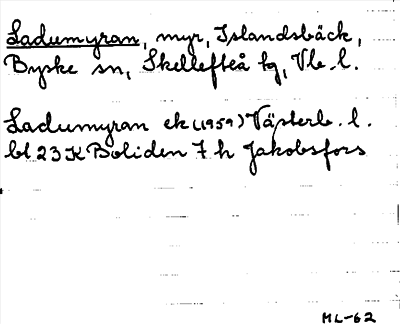 Ladumyran, myr, Islandsbäck,
Byske sn, Skellefteå kg, Vb. l.
Ladumyran ek (1959) Västerb. l.
bl 23 K Boliden 7 h Jakobsfors
ML-62